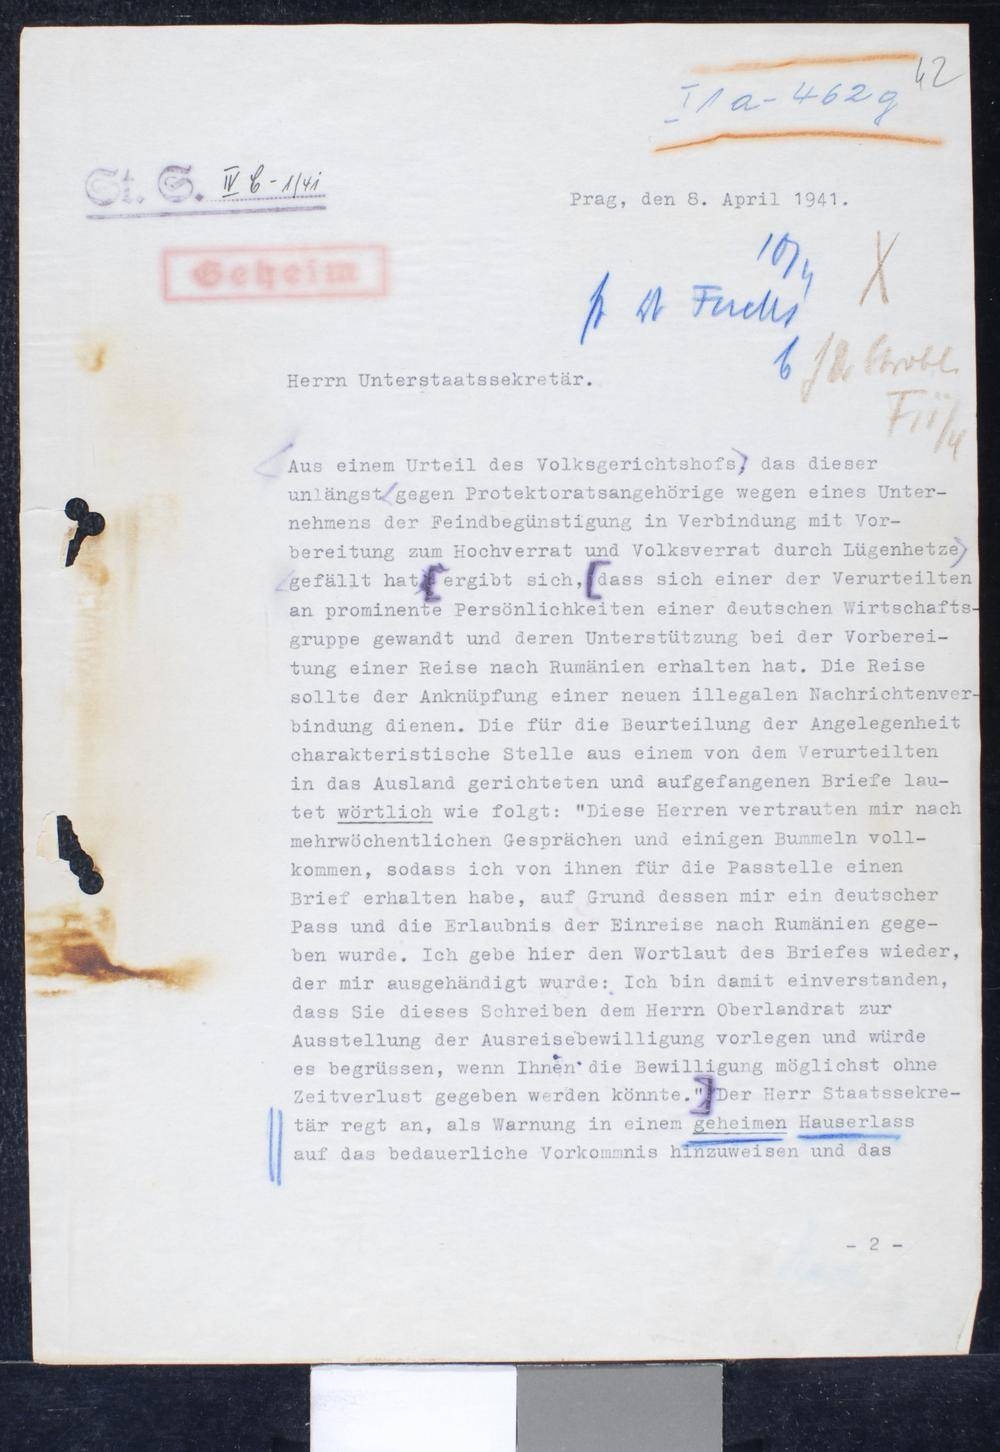 42
I 1 a - 462 g
St. S. IV C - 1/41
Prag, den 8. April 1941.
Geheim
10/4
X
Fuchs
Herrn Unterstaatssekretär.
Aus einem Urteil des Volksgerichtshofs, das dieser
unlängst gegen Protektoratsangehörige wegen eines Unter-
nehmens der Feindbegünstigung in Verbindung mit Vor-
bereitung zum Hochverrat und Volksverrat durch Lügenhetze
gefällt hat, ergibt sich, dass sich einer der Verurteilten
an prominente Persönlichkeiten einer deutschen Wirtschafts-
gruppe gewandt und deren Unterstützung bei der Vorberei-
tung einer Reise nach Rumänien erhalten hat. Die Reise
sollte der Anknüpfung einer neuen illegalen Nachrichtenver-
bindung dienen. Die für die Beurteilung der Angelegenheit
charakteristische Stelle aus einem von dem Verurteilten
in das Ausland gerichteten und aufgefangenen Briefe lau-
tet wörtlich wie folgt: "Diese Herren vertrauten mir nach
mehrwöchentlichen Gesprächen und einigen Bummeln voll-
kommen, sodass ich von ihnen für die Passtelle einen
Brief erhalten habe, auf Grund dessen mir ein deutscher
Pass und die Erlaubnis der Einreise nach Rumänien gege-
ben wurde. Ich gebe hier den Wortlaut des Briefes wieder,
der mir ausgehändigt wurde: Ich bin damit einverstanden,
dass Sie dieses Schreiben dem Herrn Oberlandrat zur
Ausstellung der Ausreisebewilligung vorlegen und würde
es begrüssen, wenn Ihnen die Bewilligung möglichst ohne
Zeitverlust gegeben werden könnte." Der Herr Staatssekre-
tär regt an, als Warnung in einem geheimen Hauserlass
auf das bedauerliche Vorkommnis hinzuweisen und das
- 2 -